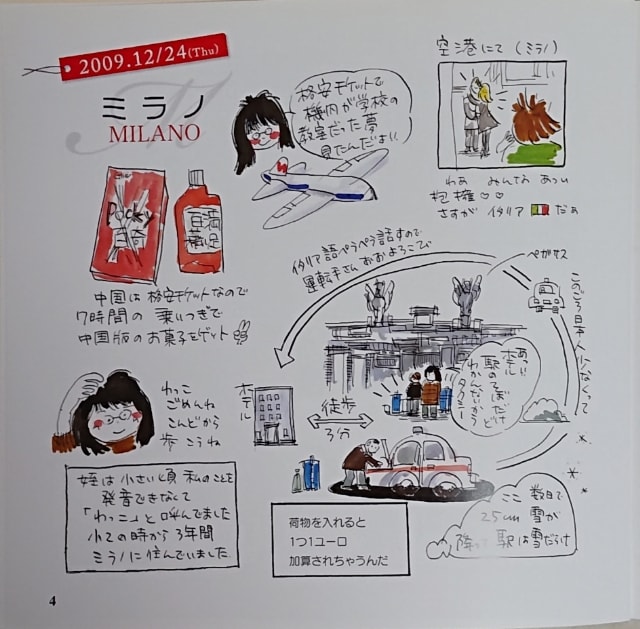 2009.12/24(Thu)
ミラノ
MILANO
格安チケットで
機内が学校の
教室だった夢
見たんだよぃ
空港にて (ミラノ)
わあ みんな あつい
抱擁♡♡
さすが イタリア だぁ
Pocky
百奇
中国は 格安チケットなので
7時間の 乗りつぎで
中国版の お菓子をゲット
イタリア語ペラペラ話すので
運転手さん おおよろこびで
ペガサス
このごろ日本人少なくって
あっ
ホテル
駅のそばだけど
わかんないから
タクシー
ホテル
徒歩
3分
わっこ
ごめんね
こんどから
歩こうね
姪は 小さい頃 私のことを
発音できなくて
「わっこ」と 呼んでました
小2の時から 3年間
ミラノに住んでいました
荷物を入れると
1つ1ユーロ
加算されちゃうんだ
ここ 数日で
25cm 雪が
降って 駅は雪だらけ
4